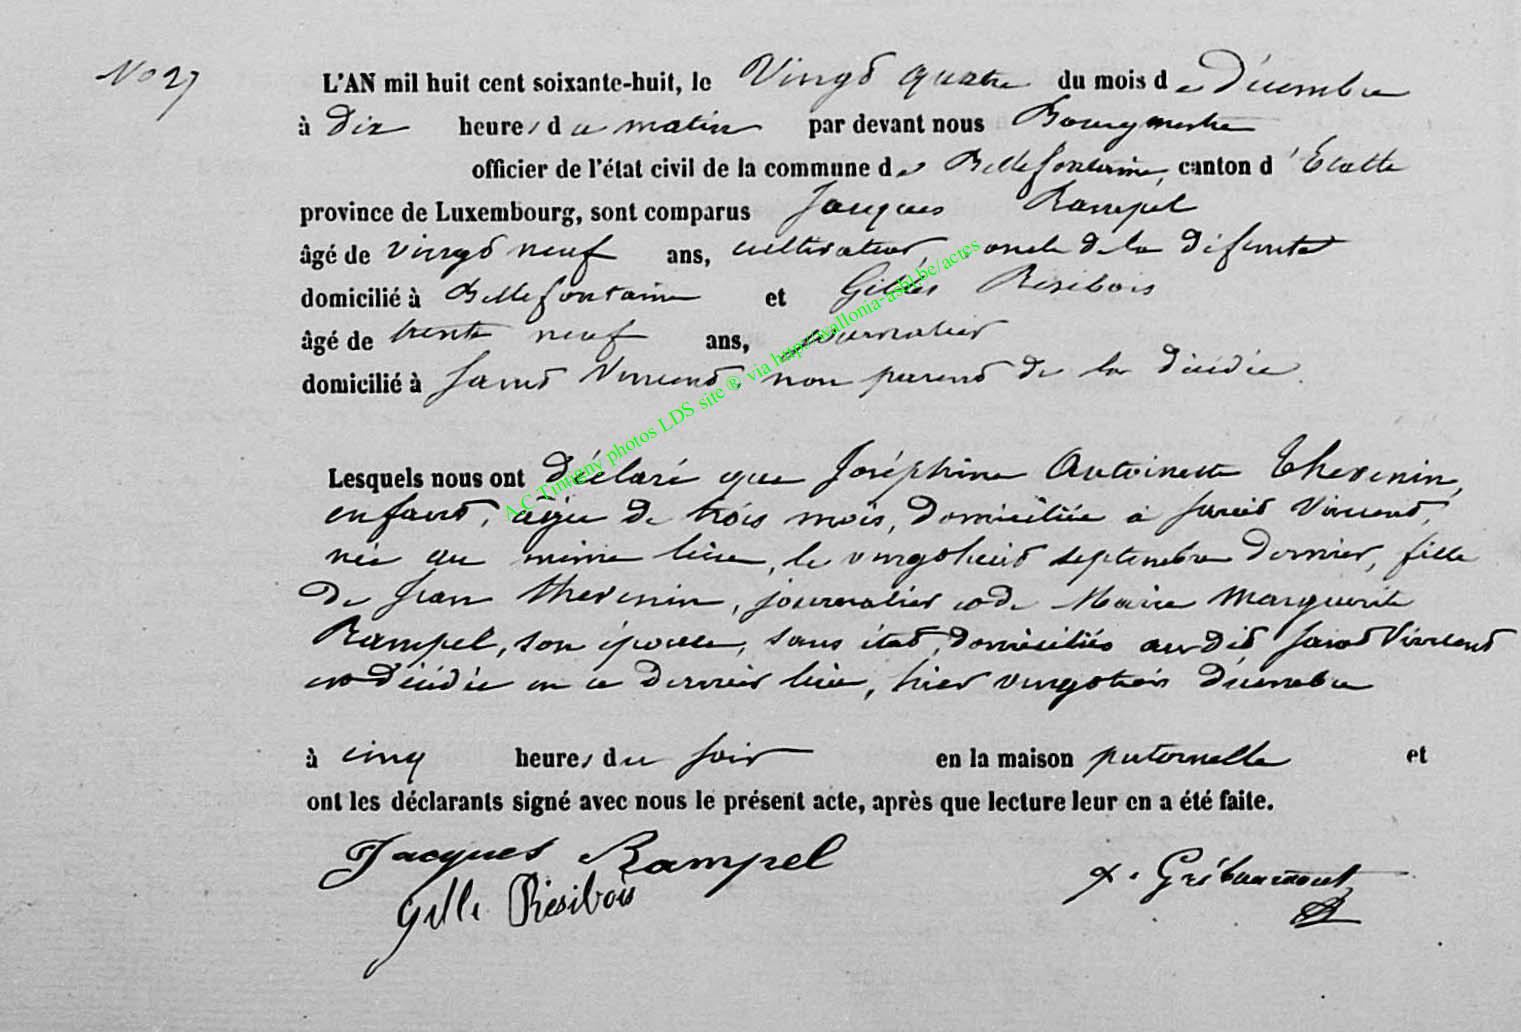 No 27
L'AN mil huit cent soixante-huit, le Vingt quatre du mois de Décembre
à Dix heures du matin par devant nous Bourgmestre
officier de l'état civil de la commune de Bellefontaine, canton d'Etalle
province de Luxembourg, sont comparus Jacques Rampel
âgé de vingt neuf ans, cultivateur, oncle de la défunte
domicilié à Bellefontaine et Gilles Résibois
âgé de trente neuf ans, journalier
domicilié à Saint Vincent, non parent de la décédée.
Lesquels nous ont déclaré que Joséphine Antoinette Thevenin,
enfant, âgée de trois mois, domiciliée à Saint Vincent,
née au même lieu, le vingt huit septembre dernier, fille
de Jean Thevenin, journalier et de Marie Marguerite
Rampel, son épouse, sans état, domiciliés audit Saint Vincent
est décédée en ce dernier lieu, hier vingt trois décembre
à cinq heures du soir en la maison paternelle et
ont les déclarants signé avec nous le présent acte, après que lecture leur en a été faite.
Jacques Rampel
Gille Résibois
Gribaumont
A.C Tintigny photos LDS site ® via http://wallonia-asbl.be/actes